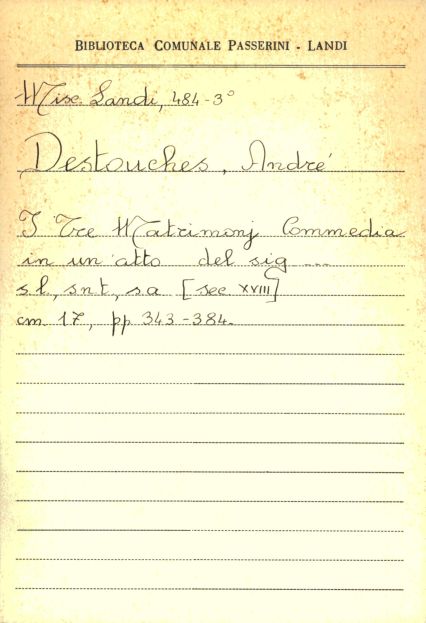 BIBLIOTECA COMUNALE PASSERINI - LANDI
Misc. Landi, 484-3°
Destouches, André
I Tre Matrimonj Commedia
in un atto del sig ...
s.l., s.n.t., s.a [sec XVIII]
cm. 17, pp 343-384.